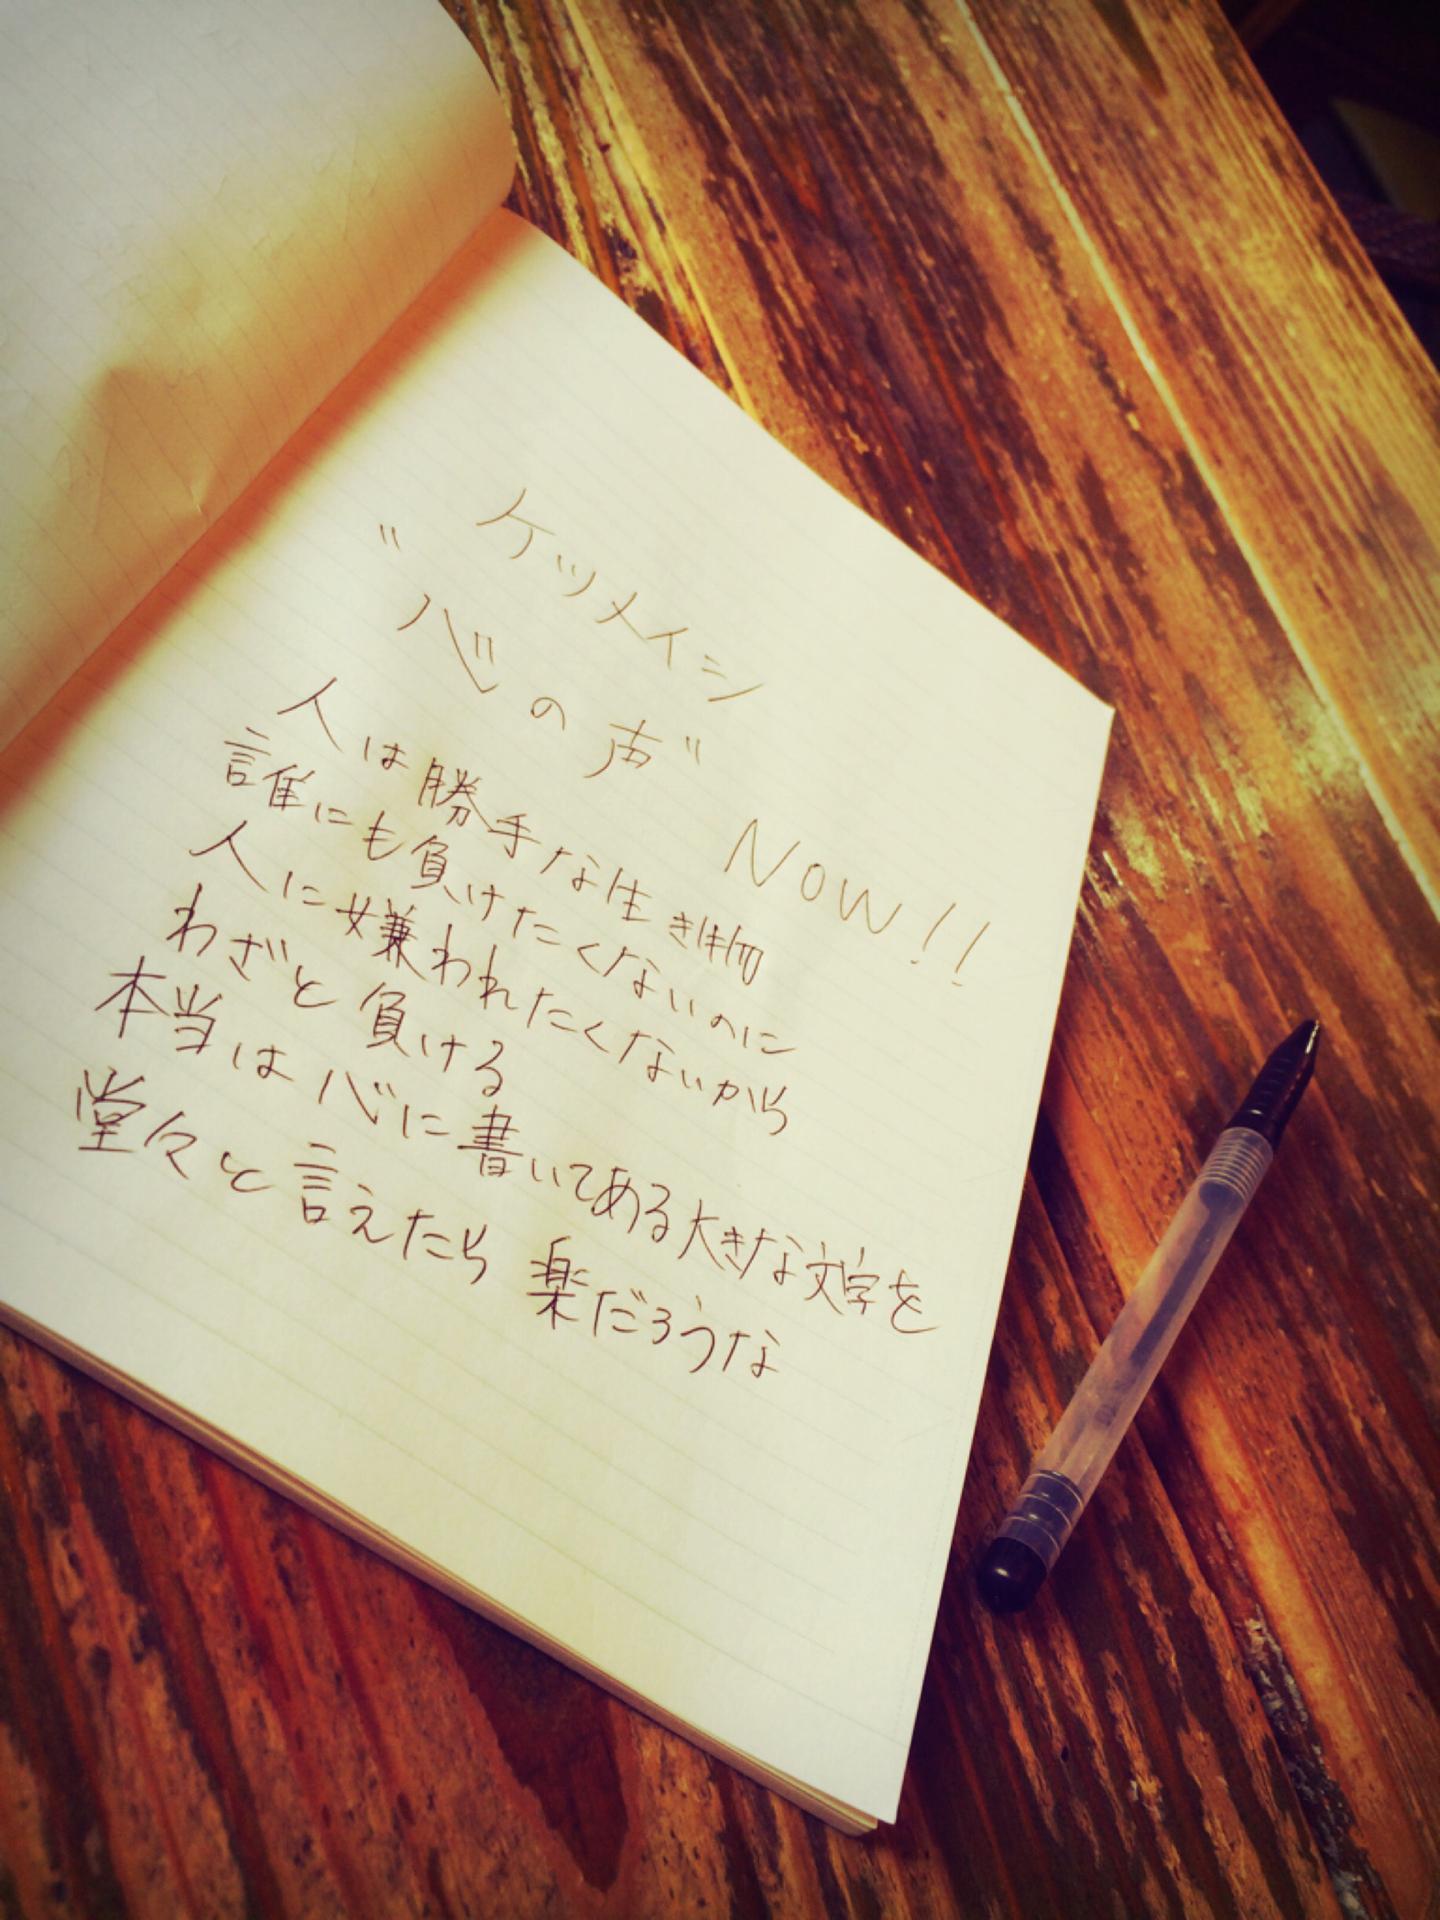 ケツメイシ
"心の声"
Now!!
人は勝手な生き物
誰にも負けたくないのに
人に嫌われたくないから
わざと負ける
本当は心に書いてある大きな文字を
堂々と言えたら楽だろうな